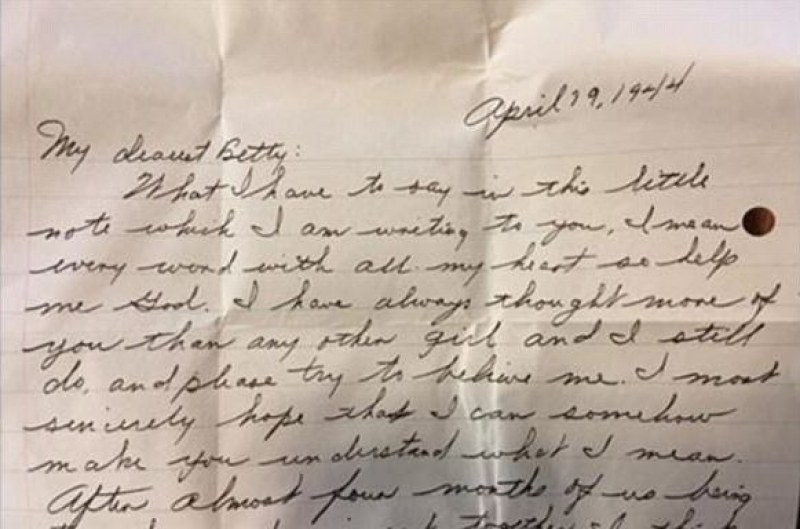 April 29, 1944
My dearest Betty:
What I have to say in this little
note which I am writing to you, I mean
every word with all my heart so help
me God. I have always thought more of
you than any other girl and I still
do, and please try to believe me. I most
sincerely hope that I can somehow
make you understand what I mean.
After almost four months of us being
together